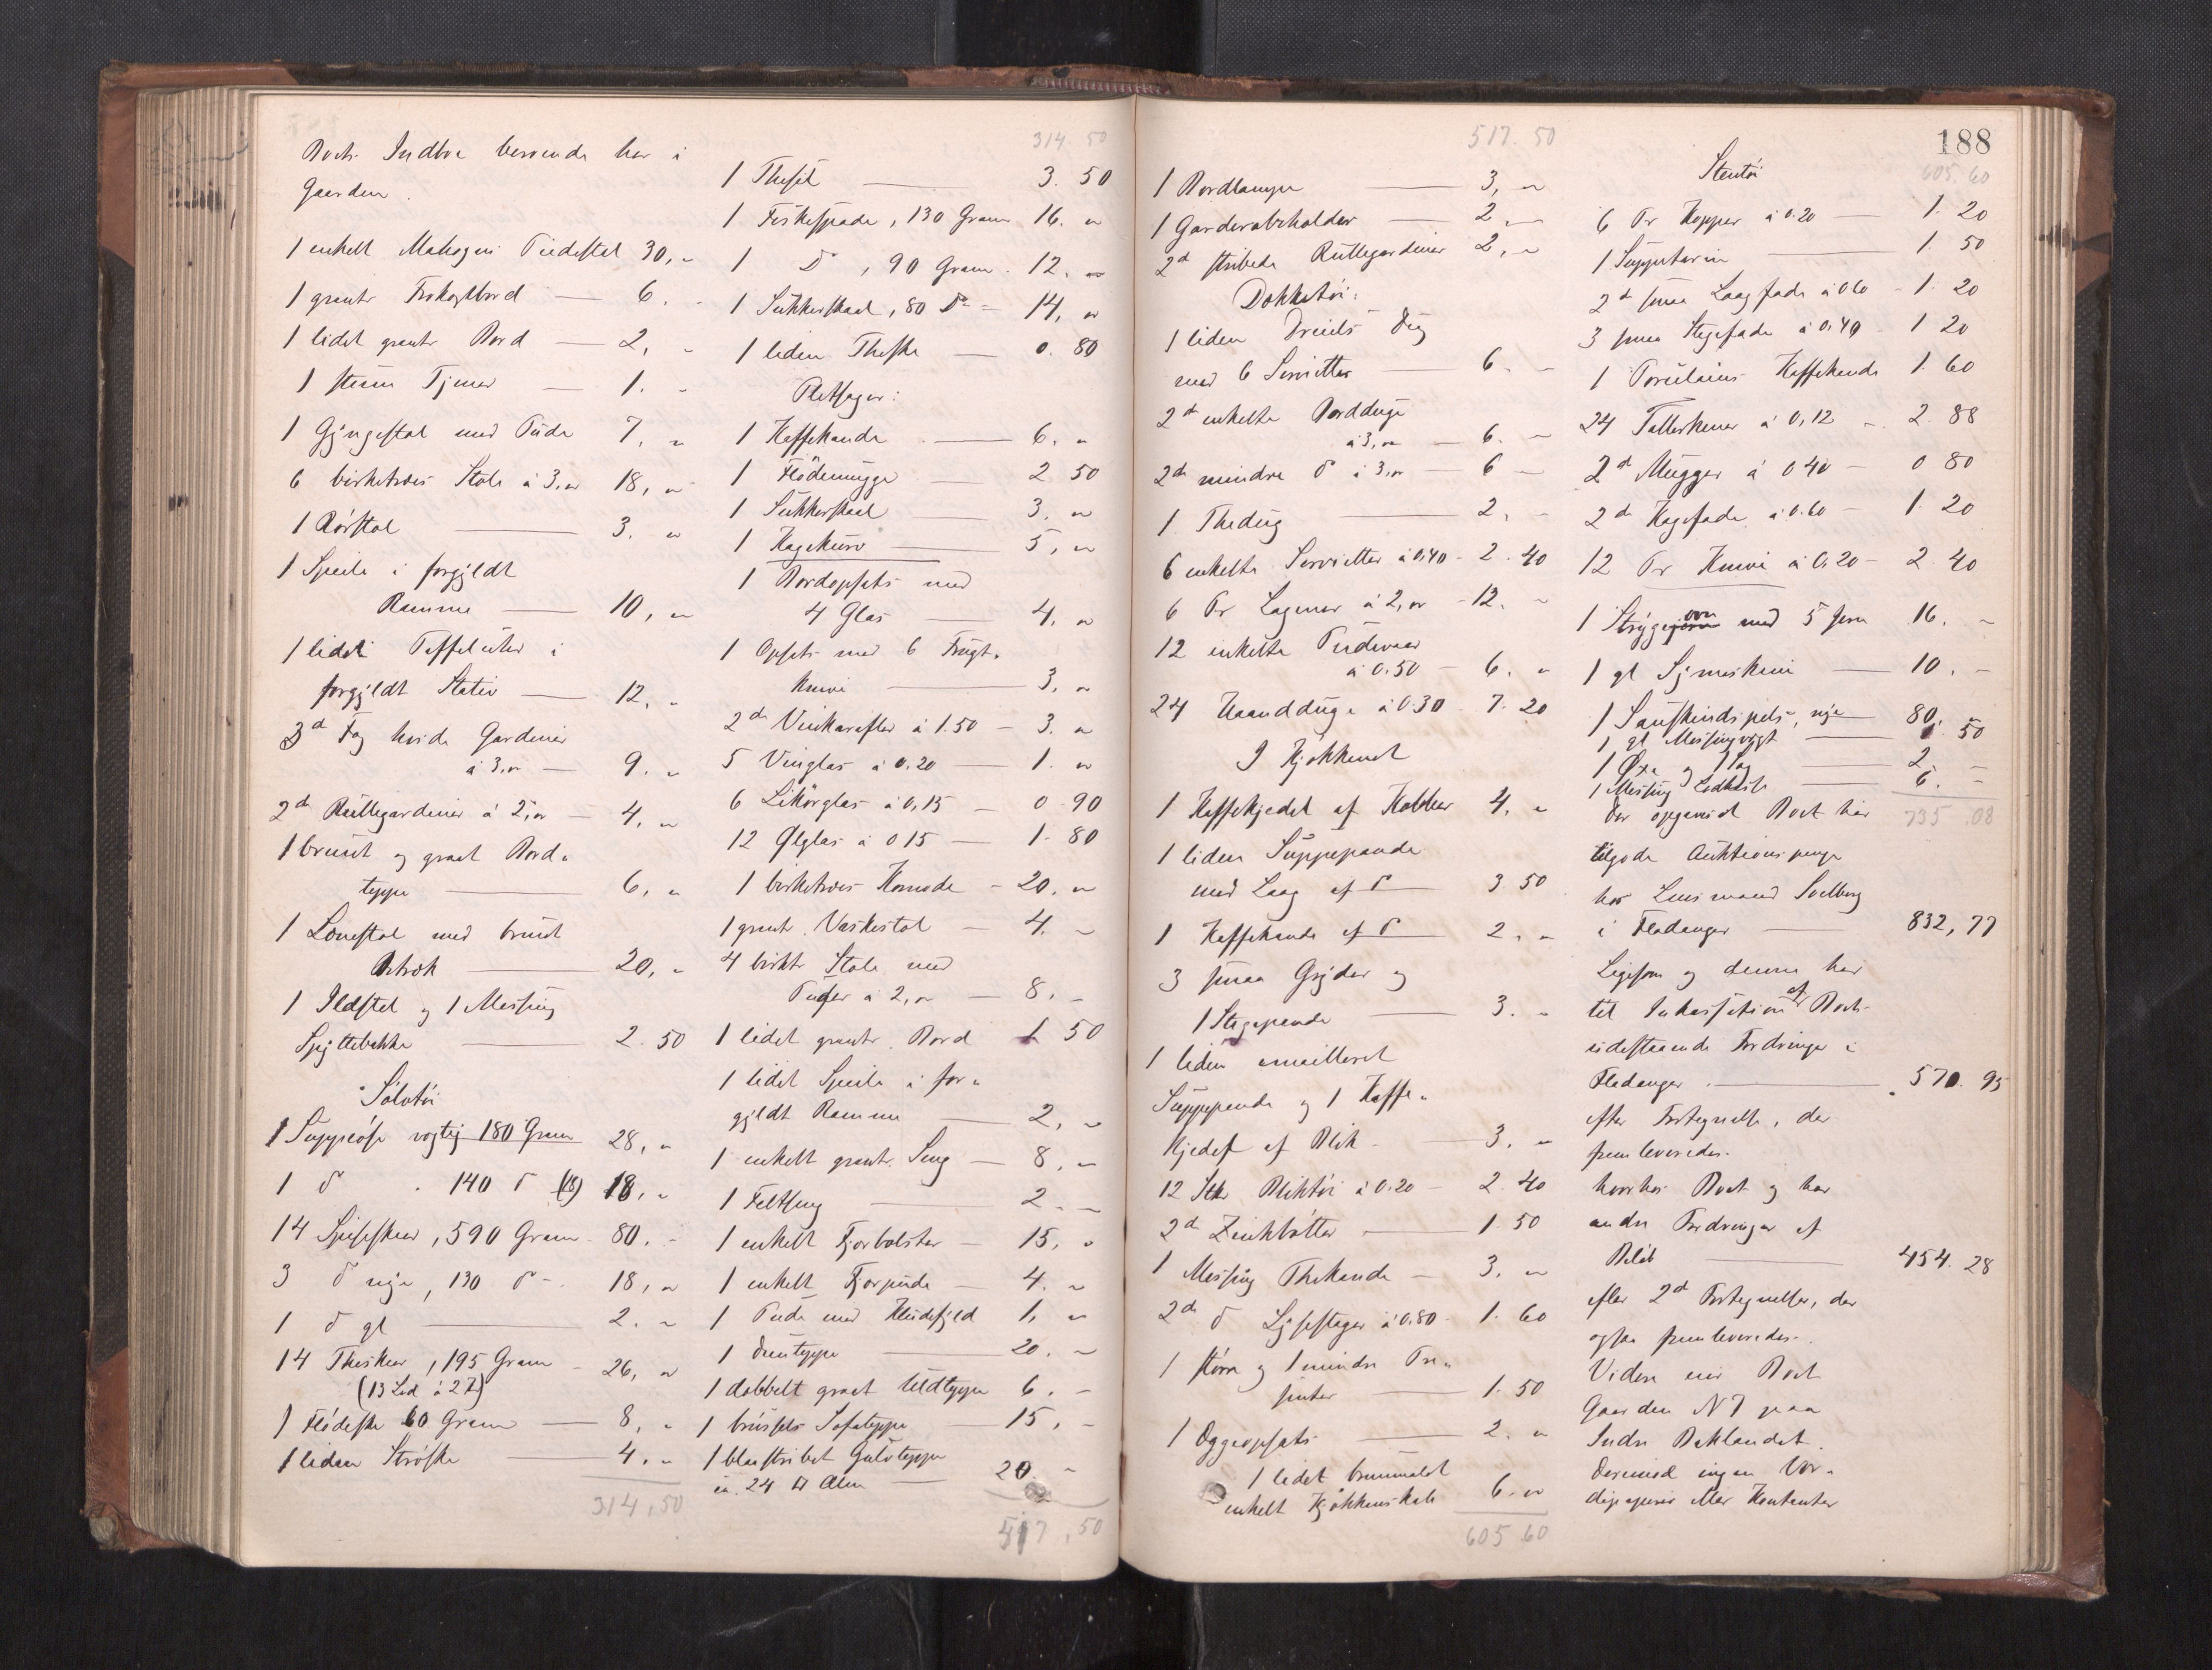 Boets Indbo beroende her i
Gaarden.
1 enkelt Mahogni Piedestal 30, „
1 grønt Frokostbord — 6. „
1 lidet grønt Bord — 2, „
1 Tjener — 1. „
1 Gyngestol med Pude 7, „
6 birketræs Stole à 3, „ 18, „
1 Rørstol — 3. „
1 Speile i forgyldt
Ramme — 10, „
1 lidet Taffeluhr i
forgyldt Stativ — 12, „
3 d Fag hvide Gardiner
à 3, „ — 9. „
2 de Rullegardiner à 2, „ — 4, „
1 bruunt og graat Bord-
teppe — 6, „
1 Lænestol med bruunt
Betræk — 20, „
1 Ildstel og 1 Messing
Spyttebakke — 2. 50
Sølvtøi
1 Suppeøse vægtig 180 Gram 28, „
1 d° 140 d° (18) 18, „
14 Spiseskeer, 590 Gram - 80. -
3 d° nye, 130 d° - 18, „
1 d° gl — 2. „
14 Theskeer, 195 Gram - 26, „
(13 Lod à 2 )
1 Flødeske 60 Gram — 8, „
1 liden Strøske — 4. „
314,50
314.50
1 Thesil — 3. 50
1 Fiskespade, 130 Gram 16. „
1 D°, 90 Gram - 12. „
1 Sukkerskaal, 80 D° - 14, „
1 liden Theske — 0. 80
Pletsager:
1 Kaffekande — 6. „
1 Flødemugge — 2 50
1 Sukkerskaal — 3. „
1 Kagekurv — 5, „
1 Bordopsats med
4 Glas — 4, „
1 Opsats med 6 Frugt-
knive — 3, „
2 de Vinkarafler à 1.50 — 3. „
5 Vinglas à 0.20 — 1. „
6 Likørglas à 0,15 — 0. 90
12 Ølglas à 0 15 — 1. 80
1 birketræs Komode - 20. „
1 grønt. Vaskestol — 4. „
4 birktr Stole med
Puder à 2, „ — 8. -
1 lidet grønt. Bord 1 50
1 lidet Speile i for-
gyldt Ramme — 2, „
1 enkelt grønt. Seng — 8, „
1 Feltseng — 2. „
1 enkelt Fjorbolster — 15, „
1 enkelt Fjorpude — 4. „
1 Pude med Hundefjeld 1, „
1 Dunteppe — 20. „
1 dobbelt graat Uldteppe 6. -
1 brüssels Sofateppe 15, -
1 blaastribet Gulvteppe
ca. 24 □ Alen — 20. -
517,50
517.50
1 Bordlampe — 3, „
1 Garderobeholder — 2, „
2 d stribede Rullegardiner 2, „
Dækketøi:
1 liden Dreiels Dug
med 6 Servietter — 6. -
2 d enkelte Borddüge
à 3, „ — 6. -
2 de mindre d° à 3, „ — 6 -
1 Thedug — 2, -
6 enkelte Servietter à 0,40 - 2. 40
6 Pr Lagener à 2, „ - 12. -
12 enkelte Pudevaar
à 0.50 — 6. „
24 Haandduge à 0.30 - 7. 20
I Kjøkkenet
1 Kaffekjedel af Kobber 4. „
1 liden Suppepande
med Laag af d° — 3 50
1 Kaffekande af d° 2. „
3 smaa Gryder og
1 Stegepande — 3. „
1 liden emailleret
Suppepande og 1 Kaffe-
kjedel af Blik — 3. „
12 Stkr Bliktøi à 0.20 — 2. 40
2 de Zinkbøtter — 1. 50
1 Messing Thekande — 3. „
2 de d° Lysestager à 0.80 - 1. 60
1 større og 1 mindre
— 1. 50
1 Eggeopsats — 2. „
1 lidet bruunmalet
enkelt Kjøkkenskab 6. „
605 60
188
Stentøi
605.60
6 Pr Kopper à 0.20 — 1. 20
1 Suppeterin — 1. 50
2 de smaa Laagfade à 060 - 1. 20
3 smaa Stegefade à 0.40 - 1 20
1 Porcelains Kaffekande 1. 60
24 Tallerkener à 0,12 - 2. 88
2 d Mugger à 0 40 - 0 80
2 de Kagefade à 0.60 — 1. 20
12 Pr Knive à 0.20 — 2. 40
1 Strygeovn med 5 Jern 16. -
1 gl Symaskin — 10. -
1 Sauskindspels, nye 80,
1 gl Messingvægt — 1. 50
1 Øxe og 1 Sag — 2 -
1 Messing — 6. -
735.08
Der opgaves at Boet har
tilgode Auktionspenge
hos Lensmand Solberg
i Fladanger — 832,77
Ligesom og denne har
til Inkassation af Boets
udestaaende Fordringer i
Fladanger — 570. 95
efter Fortegnelse, der
fremleveredes.
hvorhos Boet og har
andre Fordringer af
Beløb — 454. 28
efter 2 d Fortegnelser, der
ogsaa fremleveredes.
Videre eier Boet
Gaarden N 7 paa
Indre Baklandet.
Derimod ingen Vær-
dipapirer eller Kontanter